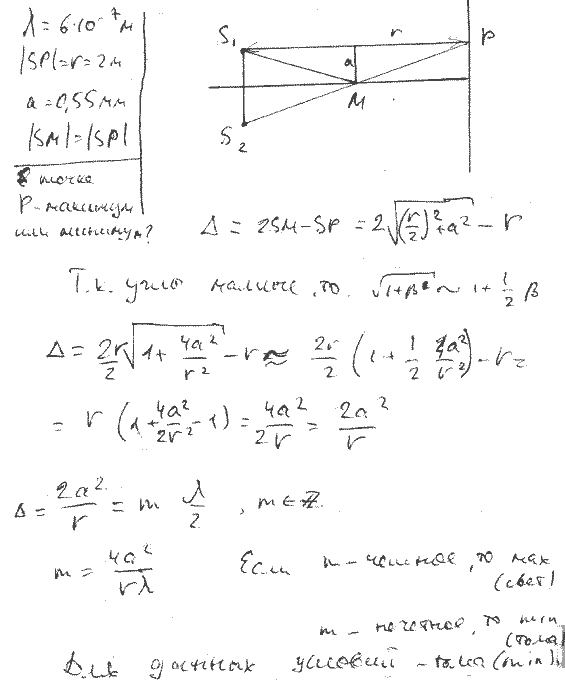 λ = 6·10⁻⁷ м
|SP| = r = 2м
a = 0,55 мм
|SM| = |SP|
В точке
P - максимум
или минимум?
S₁
r
P
a
M
S₂
Δ = 2SM - SP = 2√((r/2)² + a²) - r
Т.к. углы малые, то √(1+β²) ~ 1 + 1/2 β
Δ = 2r/2 √(1 + 4a²/r²) - r ≈ 2r/2 (1 + 1/2 4a²/r²) - r =
= r (1 + 4a²/2r² - 1) = 4a²/2r = 2a²/r
Δ = 2a²/r = m λ/2 , m ∈ Z
m = 4a²/rλ Если m - четное, то мах
(свет)
m - нечетное, то min
(тьма)
Для данных условий - тьма (min).